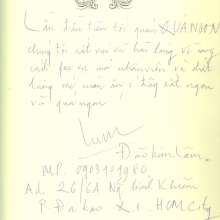 Lần đầu tiên tới quán QUÁ NGON
chúng tôi rất vui và hài lòng về cung
cách phục vụ của nhân viên và chất
lượng các món ăn ở đây rất ngon
và quá ngon.
Đào Kim Lâm.
MP. 0903909980
Ad. 26/6A Ng. Bỉnh Khiêm
P. Đa Kao Q.1. HCM City